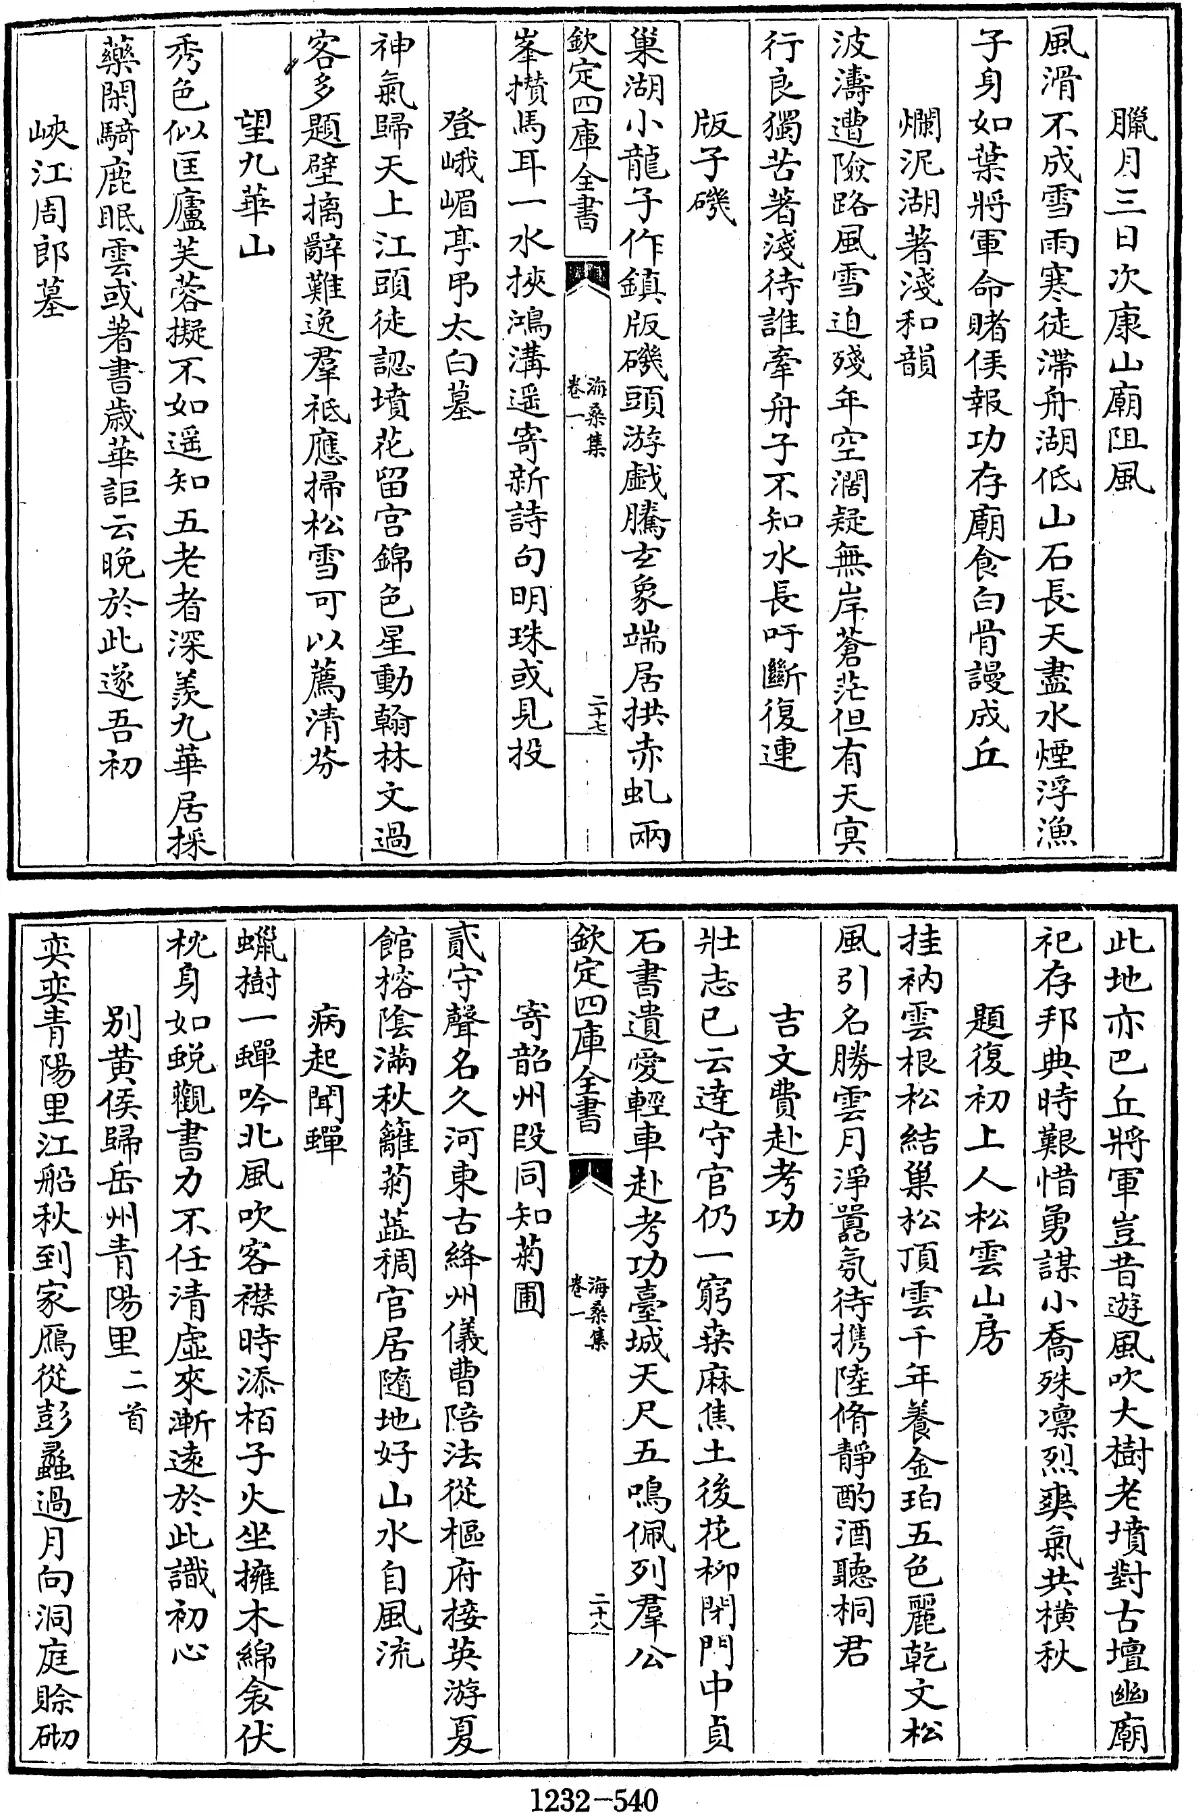 臘月三日次康山廟阻風
風滑不成雪雨寒徒滯舟湖低山石長天盡水煙浮漁
子身如葉將軍命賭侯報功存廟食白骨謾成丘
爛泥湖著淺和韻
波濤遭險路風雪迫殘年空濶疑無岸蒼茫但有天㝠
行良獨苦著淺待誰牽舟子不知水長吁斷復連
版子磯
巢湖小龍子作鎮版磯頭游戲騰玄象端居拱赤虬兩
欽定四庫全書
海桑集
卷一
二十七
峯攅馬耳一水挾鴻溝遥寄新詩句明珠或見投
登峨嵋亭弔太白墓
神氣歸天上江頭徒認墳花留宫錦色星動翰林文過
客多題壁摛辭難逸羣祗應掃松雪可以薦清芬
望九華山
秀色似匡廬芙蓉擬不如遥知五老者深羨九華居採
藥閑騎鹿眠雲或著書歲華詎云晚於此遂吾初
峽江周郎墓
此地亦巴丘將軍豈昔遊風吹大樹老墳對古壇幽廟
祀存邦典時艱惜勇謀小喬殊凛烈爽氣共横秋
題復初上人松雲山房
挂衲雲根松結巢松頂雲千年養金珀五色麗乾文松
風引名勝雲月淨囂氛待携陸脩靜酌酒聽桐君
吉文費赴考功
壯志已云逹守官仍一窮桒麻焦土後花柳閉門中貞
石書遺愛輕車赴考功臺城天尺五鳴佩列羣公
欽定四庫全書
海桑集
卷一
二十八
寄韶州段同知菊圃
貳守聲名久河東古絳州儀曹陪法從樞府接英游夏
館榕陰滿秋籬菊蕋稠官居隨地好山水自風流
病起聞蟬
蠟樹一蟬吟北風吹客襟時添栢子火坐擁木綿衾伏
枕身如蜕觀書力不任清虛來漸遠於此識初心
别黄侯歸岳州青陽里二首
奕奕青陽里江船秋到家鴈從彭蠡過月向洞庭賒砌
1232-540